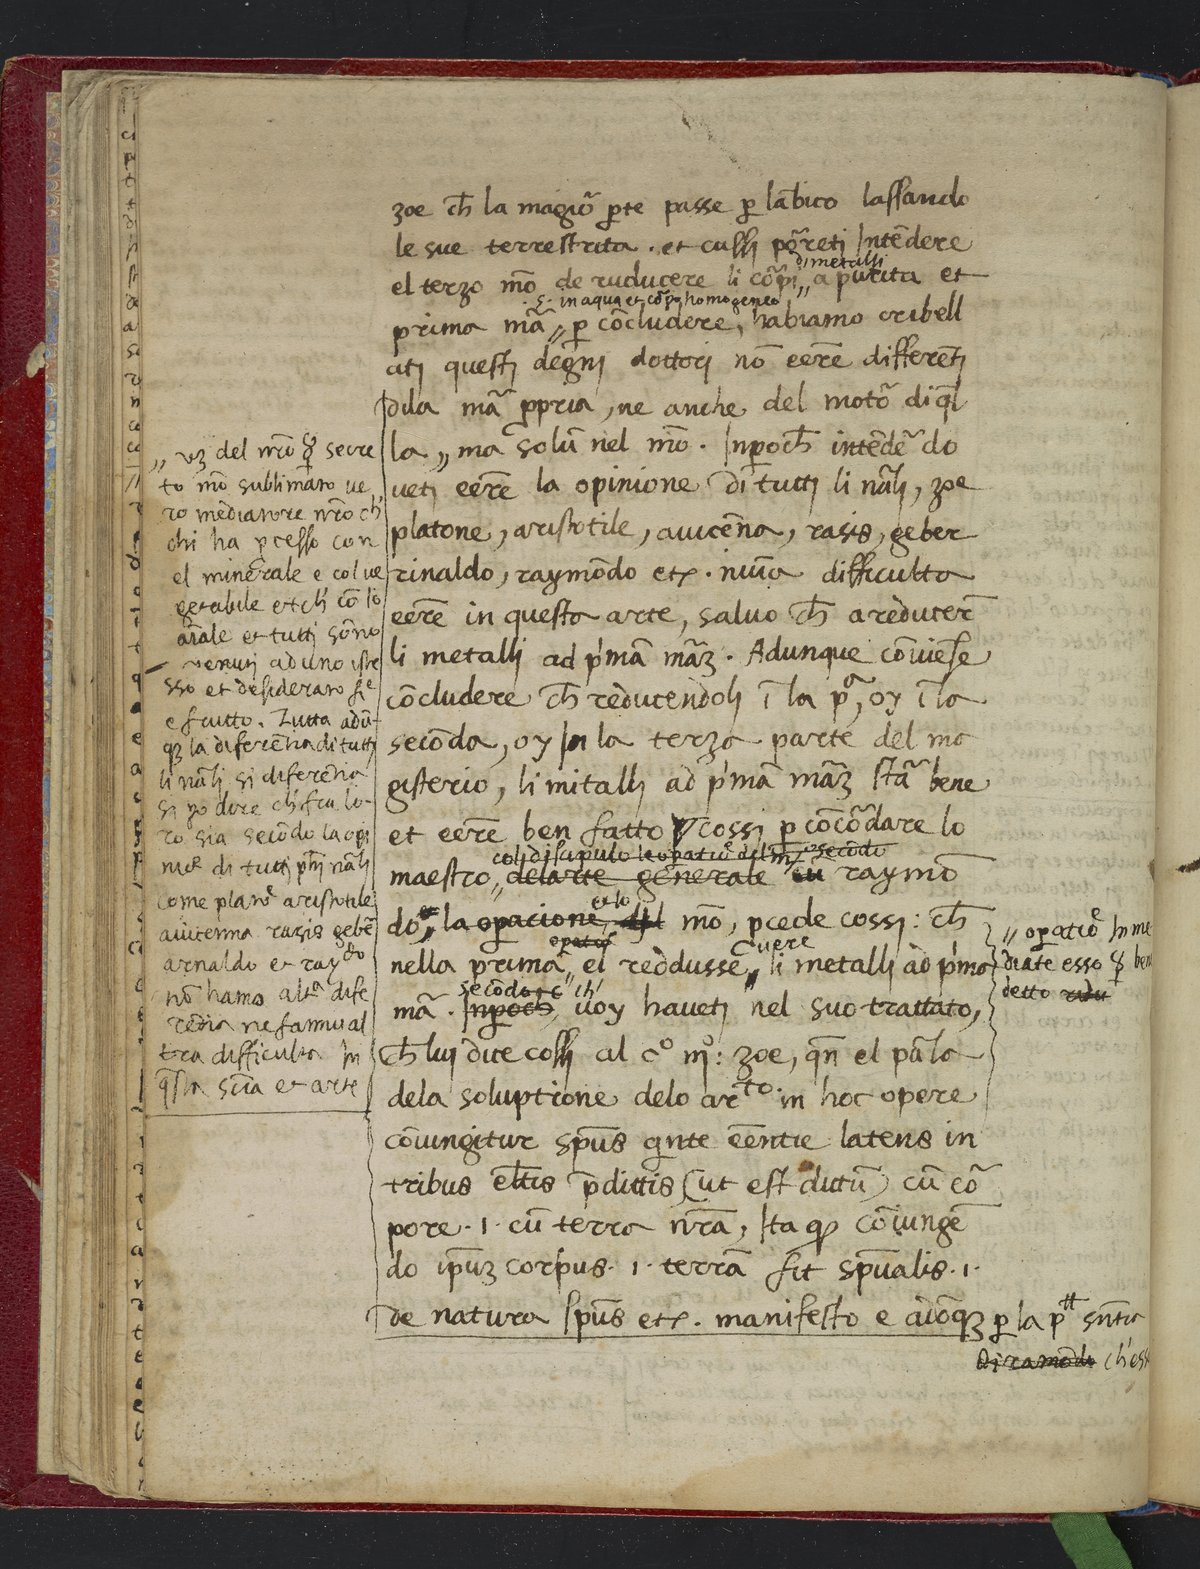 zoe ch̄ la magior̃ ꝑte passe ꝑ lābico lassando
le sue terrestrita . et cussi poreti Intēdere
di metalli
el terzo mō de ruducere li corpi „ a purita et
.s. in aqua et corpo homogeneo
prima mã „ ꝑ cōcludere, habiamo cribell
ati questi degni dottori nō eēre differēti
dila mã ꝓpria, ne anche del moto di ql
la „ ma solū nel mō . Inꝑoch̄ intēder do
ueti eēre la opinione di tutti li nāli, zoe
platone, aristotile, auicēna, rasis, geber
rinaldo, raymōdo etc . niuna difficulta
eēre in questa arte, saluo ch̄ a reducere
li metalli ad p'mā māʒ . Adunque cōuiēse
cōcludere ch̄ reducendoli ī la pª, oy ī la
secōda, oy In la terza parte del ma
gisterio, li mitalli ad p'mā māʒ stā bene
et eēre ben fatto cossi ꝑ cōcordare lo
coli discipulo le operatiōe del secōdo
maestro „ delarte generale cū raymō
et lo
do „ la oꝑacione, mō, ꝓcede cossi : ch̄
operatiōe uere
nella prima „ el reddusse „ li metalli ad p'ma
secōdo ch'
mã . Inꝑoch̄, uoy haueti nel suo trattato,
ch̄ lui dice cossi al cº mº : zoe, qñ el parla
dela soluptione delo arto . in hoc opere
cōiungitur spūs quinte eēntie latens in
tribus elītis p̄dittis (ut est dictū) cū cor̃
pore . i . cū terra nr̃a, Ita qd cōiungē
do ipūʒ corpus . i . terrā fit spūalis . i .
de natura spūs etc . manifesto e adōqʒ ꝑ la p̄tt sñtia
di ramōdo ch'ess
„ uʒ del mō secre
to mō sublimaro ue
ro mediatore nr̃o ch̄
chi ha ꝓcesso con
el minerale e col ue
getabile et ch̄ cō lo
aīale et tutti sōno
uenuti ad uno iste
sso et desideraro fie
e frutto . Tutta adū
qʒ la diferētia di tutti
li nāli si diferētia
si po dire ch' fra lo
ro sia secōdo la opi
nioe di tutti p̄ti nāli
come platoe aristotile
auicenna rasis geber
arnaldo et ray do
nō hano altra dife
rētia ne fanno al
tra difficulta In
qsta sciā et arte
„ oꝑatiōe Inme
diate esso ben
detto